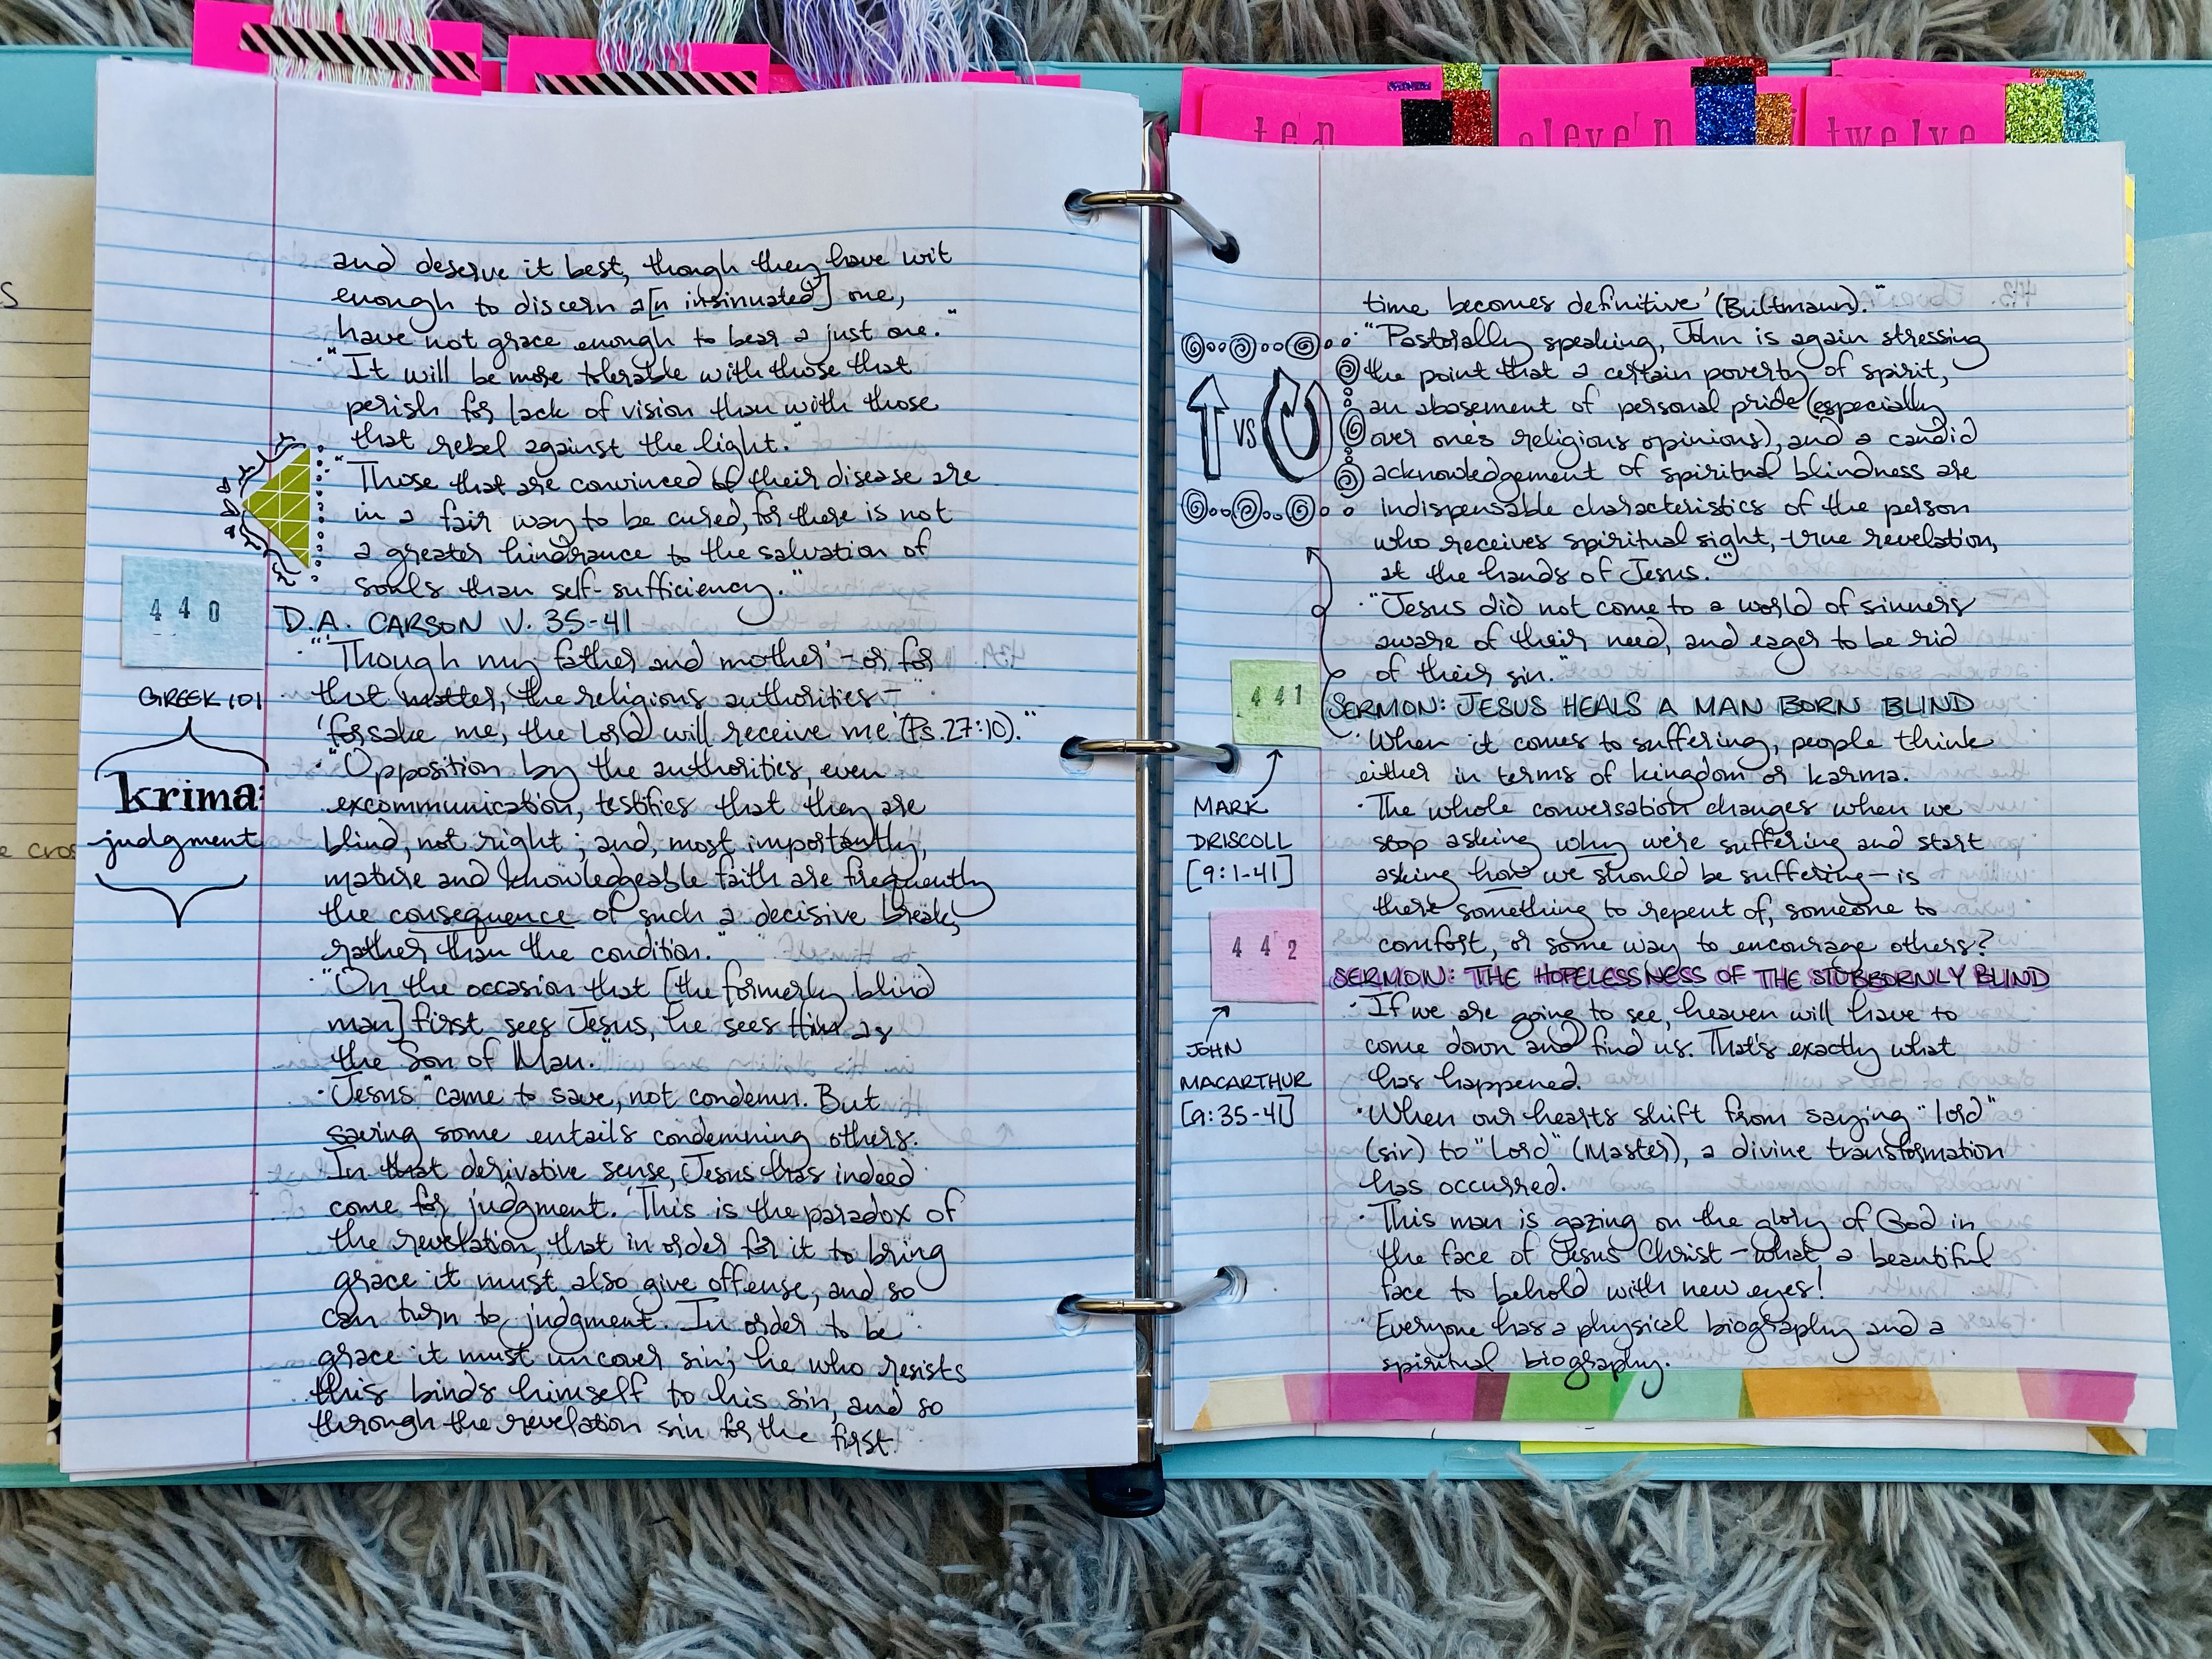 ten
eleven
twelve
and deserve it best, though they have wit
enough to discern a[n insinuated] one,
have not grace enough to bear a just one."
·"It will be more tolerable with those that
perish for lack of vision than with those
that rebel against the light."
·"Those that are convinced of their disease are
in a fair way to be cured, for there is not
a greater hindrance to the salvation of
souls than self-sufficiency."
440
D.A. CARSON V. 35-41
·"'Though my father and mother' – or for
that matter, the religious authorities –
'forsake me, the Lord will receive me' (Ps. 27:10)."
GREEK 101
krima:
judgment
·"Opposition by the authorities, even
excommunication, testifies that they are
blind, not right; and, most importantly,
mature and knowledgeable faith are frequently
the consequence of such a decisive break,
rather than the condition."
·"On the occasion that [the formerly blind
man] first sees Jesus, he sees Him as
the Son of Man."
·Jesus "came to save, not condemn. But
saving some entails condemning others.
In that derivative sense, Jesus has indeed
come for judgment. 'This is the paradox of
the revelation, that in order for it to bring
grace it must also give offense, and so
can turn to judgment. In order to be
grace it must uncover sin; he who resists
this binds himself to his sin, and so
through the revelation sin for the first
time becomes definitive' (Bultmann)."
·"Pastorally speaking, John is again stressing
the point that a certain poverty of spirit,
an abasement of personal pride (especially
over one's religious opinions), and a candid
acknowledgement of spiritual blindness are
indispensable characteristics of the person
who receives spiritual sight, true revelation,
at the hands of Jesus."
VS
·"Jesus did not come to a world of sinners
aware of their need, and eager to be rid
of their sin."
441
SERMON: JESUS HEALS A MAN BORN BLIND
MARK
DRISCOLL
[9:1-41]
·When it comes to suffering, people think
either in terms of kingdom or karma.
·The whole conversation changes when we
stop asking why we're suffering and start
asking how we should be suffering – is
there something to repent of, someone to
comfort, or some way to encourage others?
442
SERMON: THE HOPELESSNESS OF THE STUBBORNLY BLIND
JOHN
MACARTHUR
[9:35-41]
·If we are going to see, heaven will have to
come down and find us. That's exactly what
has happened.
·When our hearts shift from saying "lord"
(sir) to "Lord" (Master), a divine transformation
has occurred.
·This man is gazing on the glory of God in
the face of Jesus Christ – what a beautiful
face to behold with new eyes!
·Everyone has a physical biography and a
spiritual biography.